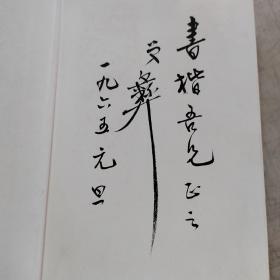 書楷吾兄正之
受彝
一九六五元旦